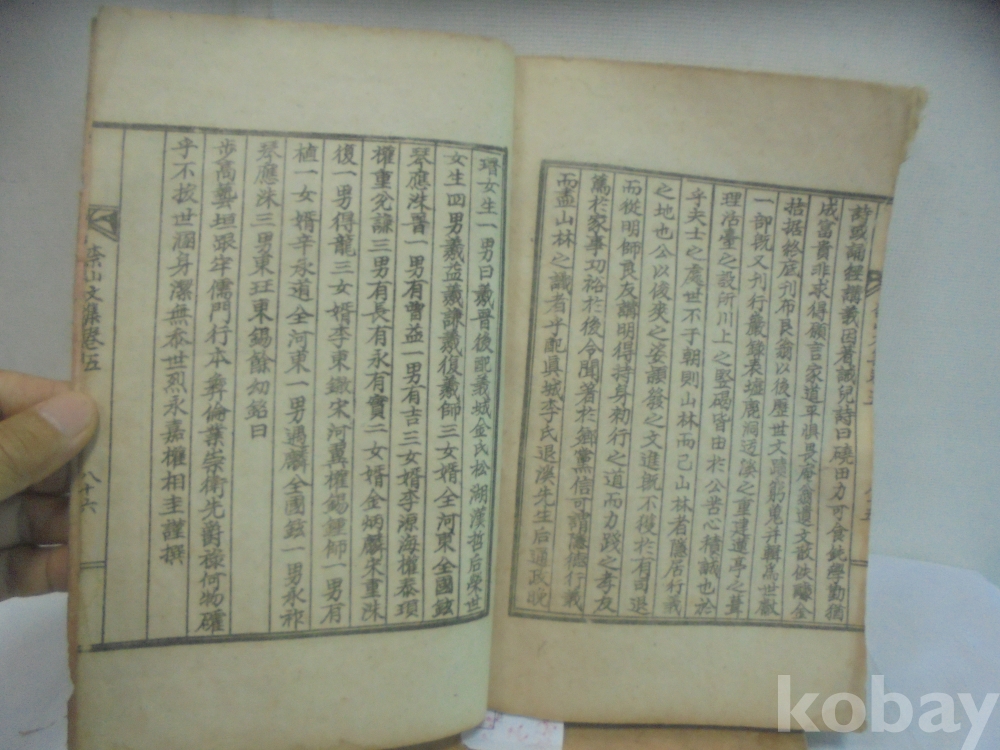 詩以誦經講義因看誡兒詩曰磽田力可食鈍學勤猶
成富貴非求得願言家道平惧畏庵翁遺文散佚隣全
拮据終底刊布艮翁以後歷世文蹟躬蒐幷輯爲世獻
一部旣又刊行嚴壇麗洞迃溪之重建遺亭之葺
理活臺之設所川上之竪碣皆由於公苦心積誠也於
乎夫士之處世不于朝則山林而已山林者隱居行義
之地也公以俊爽之姿頴發之文進旣不獲於有司退
而從明師良友講明得持身勑行之道而力踐之孝友
篤於家事功裕於後令聞著於鄕黨信可謂隱德行義
而盡山林之識者乎配眞城李氏退溪先生后通政晩
女生一男曰羲晋後配義城金氏松湖漢哲后榮世
女生四男羲益羲謙羲復羲師三女婿全河東全國鉉
琴應洙晋一男有曹益一男有吉三女婿李源海權泰瑣
權重兌謙三男有長有永有實二女婿金炳麟宋重洙
復一男得龍三女婿李東鏾宋河翼權錫鍾師一男有
植一女婿辛承道全河東一男遇麟全國鉉一男永祚
琴應洙三男東玨東錫餘幼銘曰
步高藝垣跟牢儒門行本彛倫業崇衛先爵祿何物確
乎不拔世溷身潔無忝世烈永嘉權相圭謹撰
文集卷五
八十六
kobay